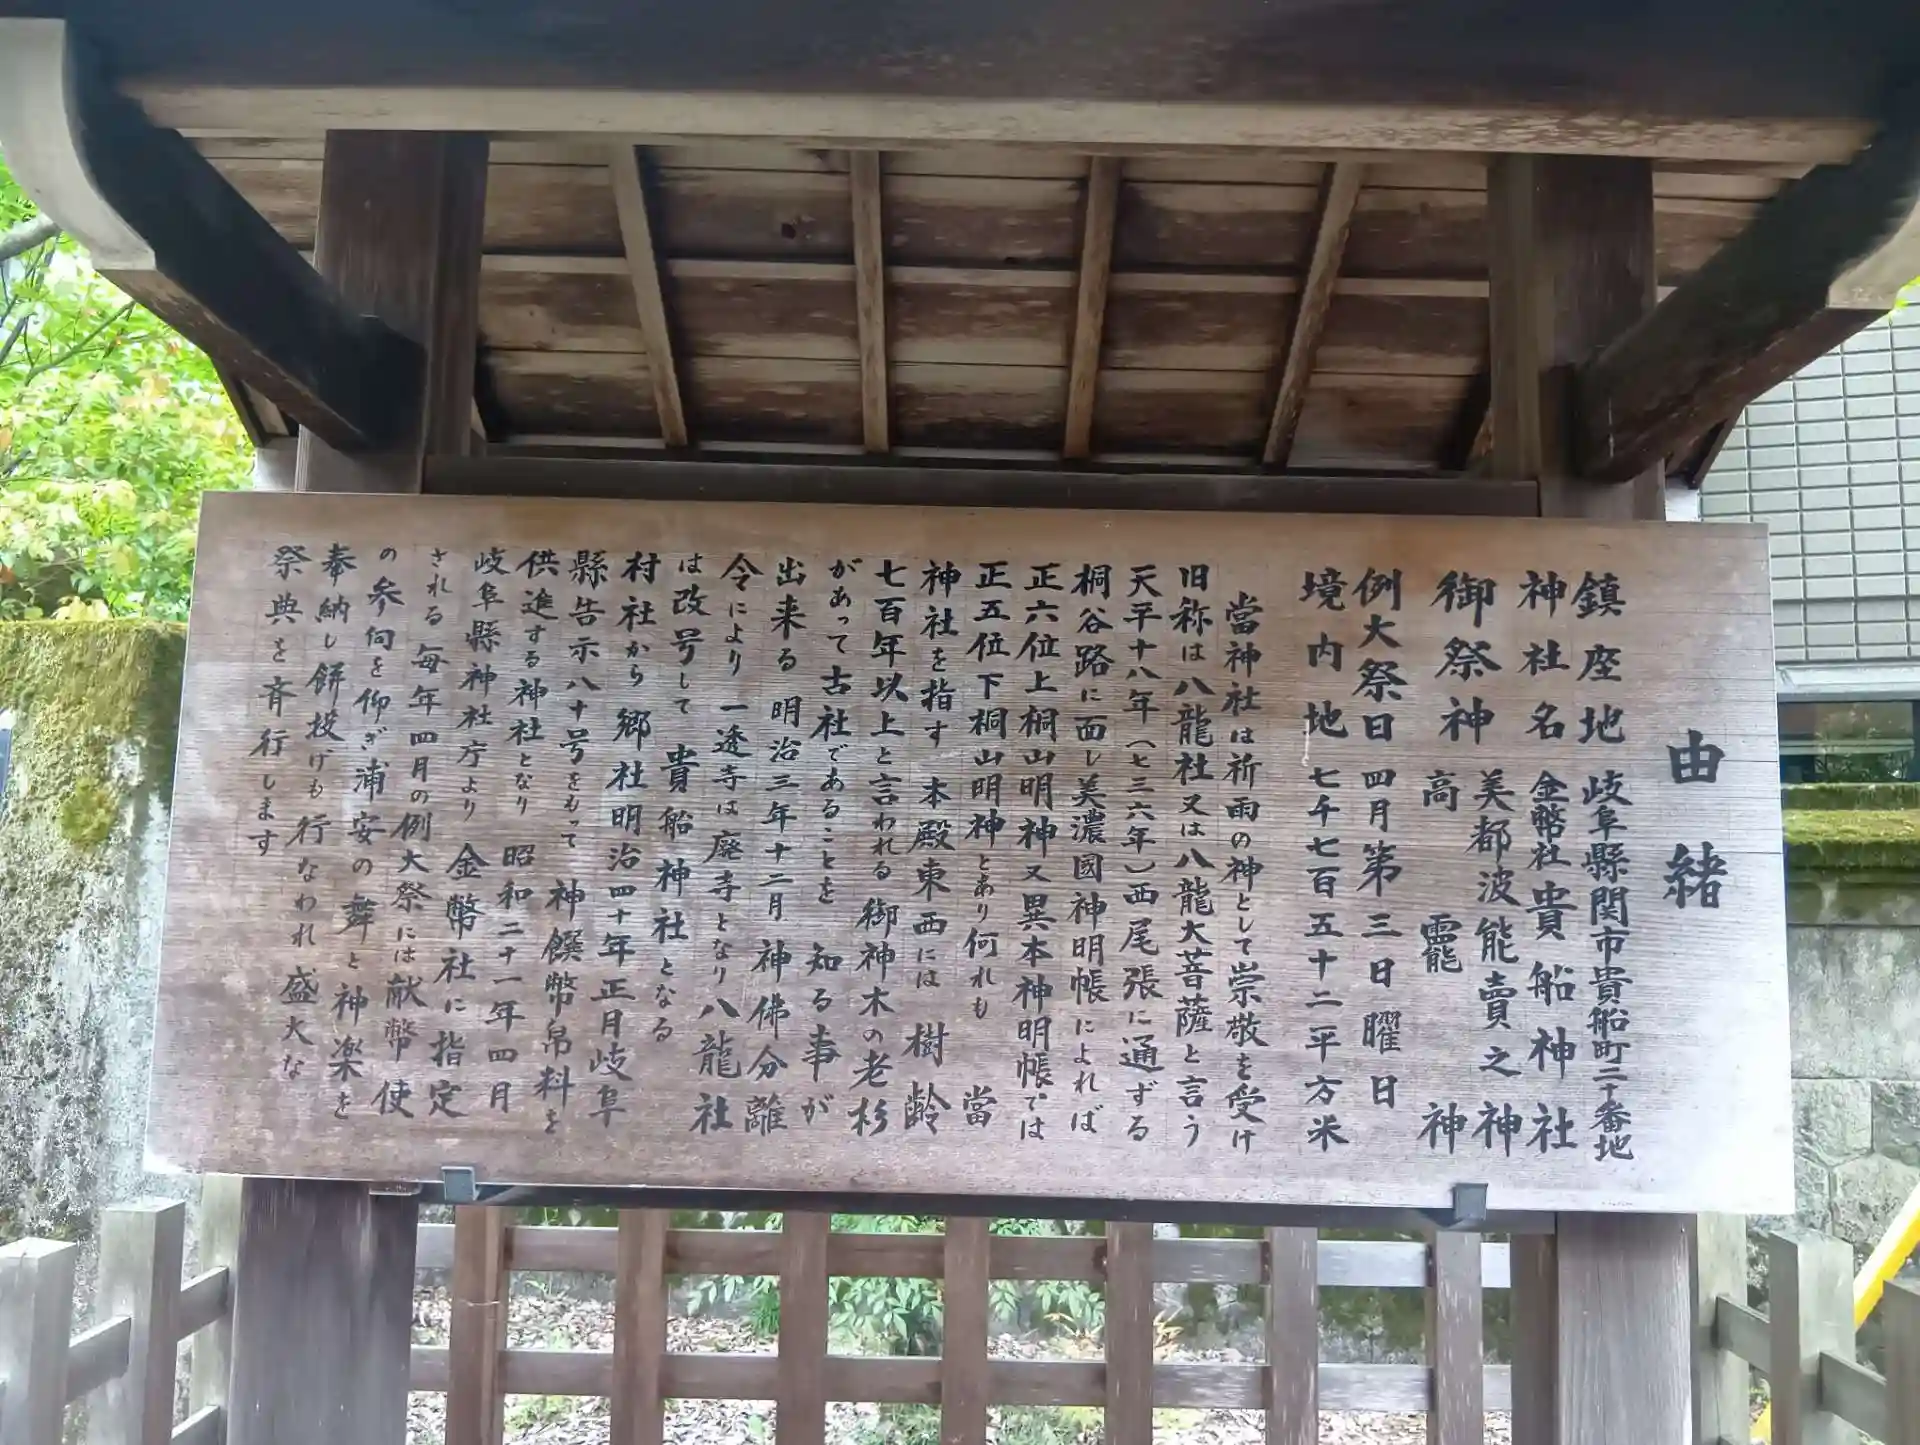 由緒
鎮座地 岐阜縣関市貴船町二十番地
神社名 金幣社貴船神社
御祭神 美都波能賣之神
高龗神
例大祭日 四月第三日曜日
境内地 七千七百五十二平方米
當神社は祈雨の神として崇敬を受け
旧称は八龍社又は八龍大菩薩と言う
天平十八年（七三六年）西尾張に通ずる
桐谷路に面し美濃國神明帳によれば
正六位上桐山明神又異本神明帳では
正五位下桐山明神とあり何れも 當
神社を指す 本殿東西には 樹齢
七百年以上と言われる御神木の老杉
があって古社であることを 知る事が
出来る 明治三年十二月 神佛分離
令により 一透寺は廃寺となり八龍社
は改号して 貴船神社となる
村社から郷社明治四十年正月岐阜
縣告示八十号をもって 神饌幣帛料を
供進する神社となり 昭和二十一年四月
岐阜縣神社庁より 金幣社に指定
される 毎年四月の例大祭には献幣使
の参向を仰ぎ浦安の舞と神楽を
奉納し餅投げも行なわれ 盛大な
祭典を斉行します